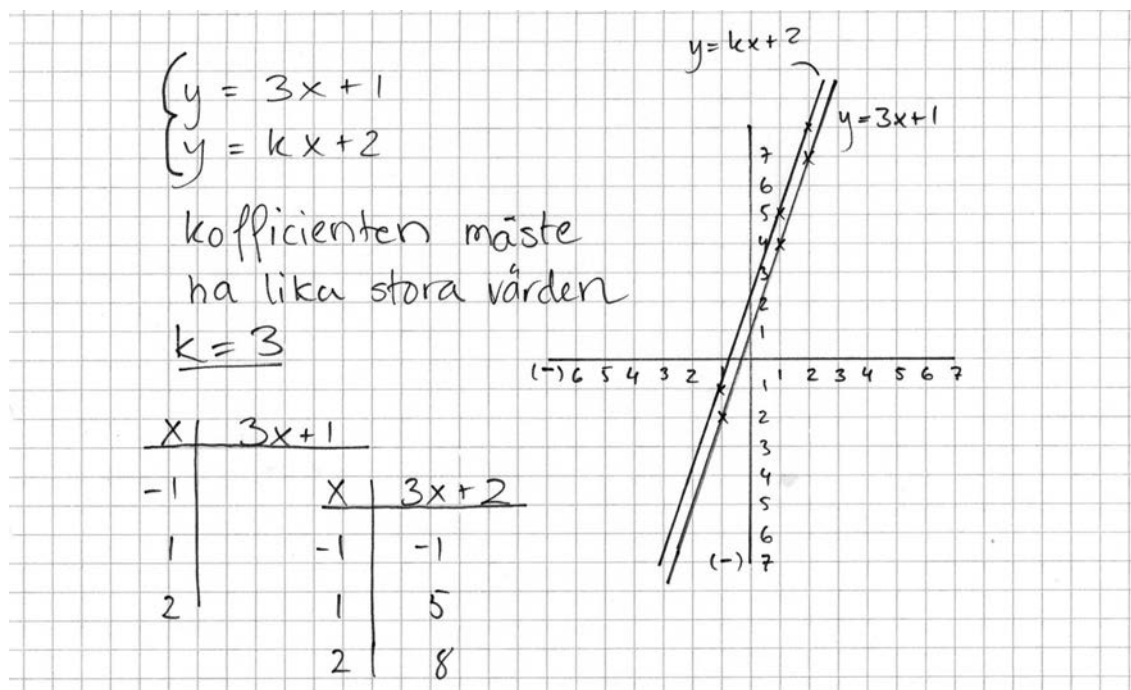 y = 3x + 1
y = kx + 2
kofficienten måste
ha lika stora värden
k = 3
x 3x + 1
-1
1
2
x 3x + 2
-1 -1
1 5
2 8
y = kx + 2
y = 3x + 1
7
6
5
4
3
2
1
(-) 6 5 4 3 2 1 1 2 3 4 5 6 7
1
2
3
4
5
6
(-) 7